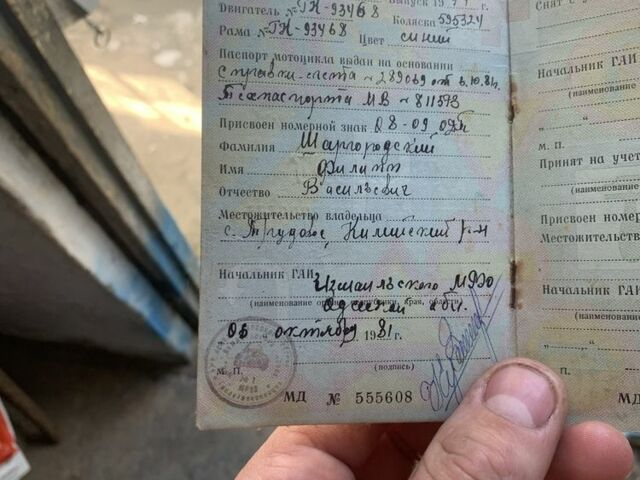 Двигатель № ГК-93468 Коляска 595324
Рама № ГК-93468 Цвет синий
Паспорт мотоцикла выдан на основании
Справки-счета № 289069 от 6.10.81г.
Техпаспорта МВ № 811573
Присвоен номерной знак 08-09 одб
Фамилия Шаргородский
Имя Филипп
Отчество Васильевич
Местожительство владельца
с. Трудовое, Килийский р-н
Начальник ГАИ Измаильского МРЭО
(наименование
Одесской обл.
„06 " октября 1981 г.
М. П. (подпись)
МД № 555608
Снят с
Начальник ГАИ
(наименование
М. п.
Принят на учет
(наименование
Присвоен номе
Местожительство
Начальник ГАИ
(наименование
М. п.
МД